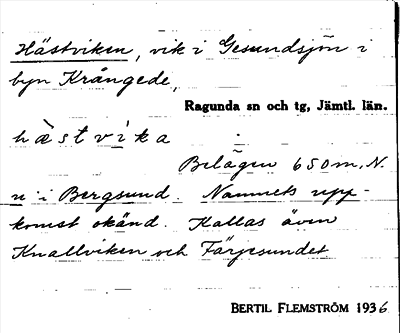 Hästviken, vik i Gesundsjön i
byn Krångede,
Ragunda sn och tg, Jämtl. län.
hä̀stvi`ka
Belägen 650 m. N.
n i Bergsund. Namnets upp-
komst okänd. Kallas även
Knallviken och Färjesundet
BERTIL FLEMSTRÖM 1936